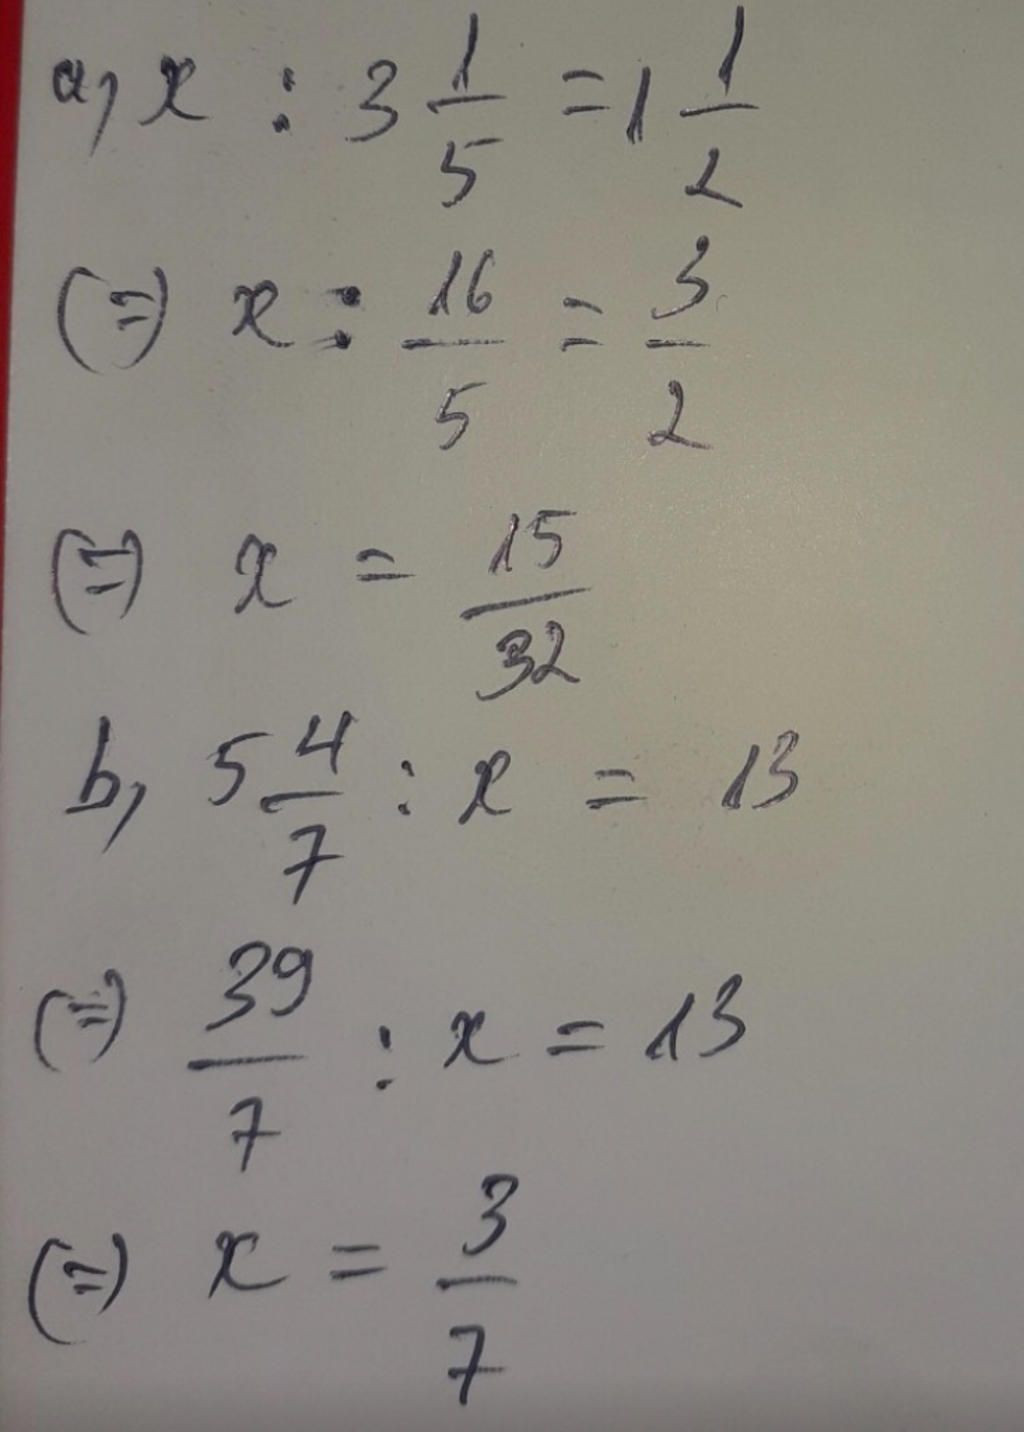 a, x : 3 1/5 = 1 1/2
(=) x : 16/5 = 3/2
(=) x = 15/32
b, 5 4/7 : x = 13
(=) 39/7 : x = 13
(=) x = 3/7